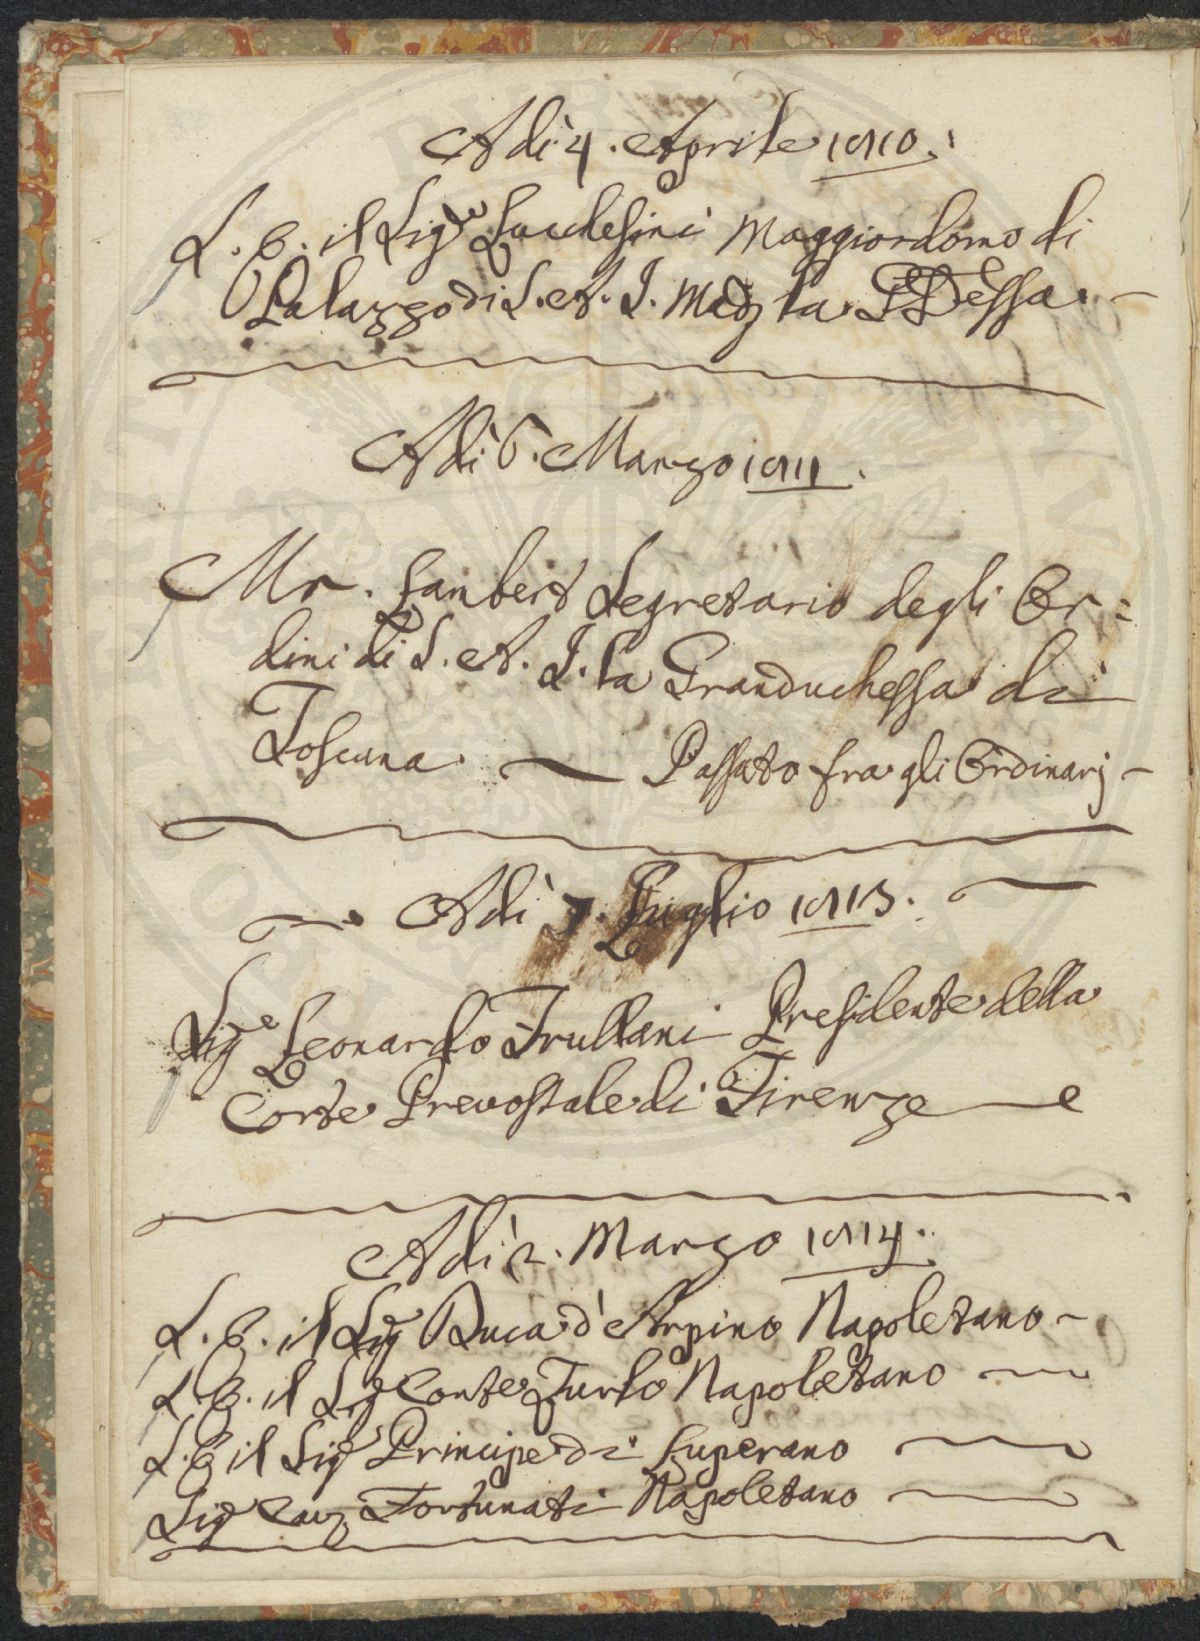 Adì 4. Aprile 1810.
S. E. il Sigre Lucchesini Maggiordomo di
Palazzo di S. A. I. Mad la GDessa. —
Adì 6. Marzo 1811.
Mr. Lambert Segretario degli Or=
dini di S. A. I. la Granduchessa di
Toscana. — Passato fra gli Ordinarj —
Adì 7. Luglio 1813.
Sige Leonardo Frullani Presidente della
Corte Prevostale di Firenze
Adì 2. Marzo 1814.
S. E. il Sig Duca d'Arpino Napoletano —
S. E. il Sig Conte Turlo Napoletano —
S. E. il Sig Principe di Luperano —
Sig Cav. Fortunati Napoletano —